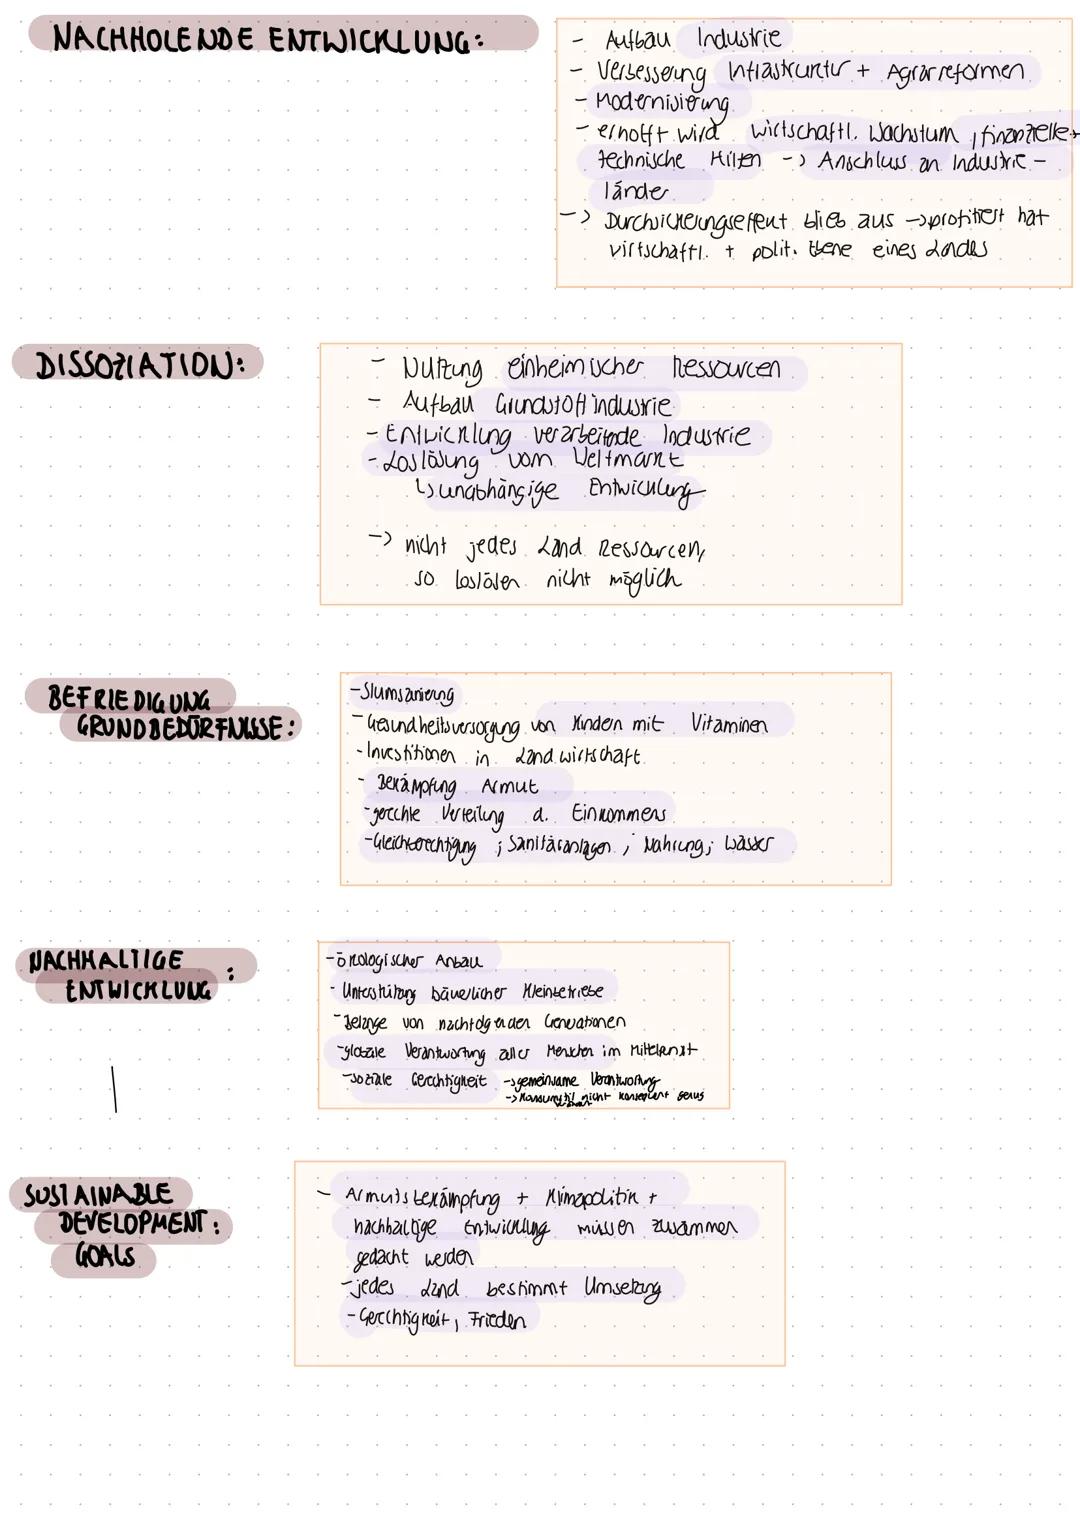 NACHHOLENDE ENTWICKLUNG:
- Aufbau Industrie
- Verbesserung Infrastruktur + Agrarreformen
- Modernisierung
- erhofft wird wirtschaftl. Wachstum, finanzielle +
technische Hilfen -> Anschluss an Industrie-
länder
-> Durchsickerungseffekt blieb aus -> profitiert hat
wirtschaftl. + polit. Ebene eines Landes
DISSOZIATION:
- Nutzung einheimischer Ressourcen
- Aufbau Grundstoffindustrie
- Entwicklung verarbeitende Industrie
- Loslösung vom Weltmarkt
↳ unabhängige Entwicklung
-> nicht jedes Land Ressourcen,
so loslösen nicht möglich
BEFRIEDIGUNG
GRUNDBEDÜRFNISSE:
- Slumsanierung
- Gesundheitsversorgung von Kindern mit Vitaminen
- Investitionen in Landwirtschaft
- Bekämpfung Armut
- gerechte Verteilung d. Einkommens
- Gleichberechtigung ; Sanitäranlagen ; Nahrung; Wasser
NACHHALTIGE
ENTWICKLUNG :
- ökologischer Anbau
- Unterstützung bäuerlicher Kleinbetriebe
- Belange von nachfolgenden Generationen
- globale Verantwortung aller Menschen im Mittelpunkt
- soziale Gerechtigkeit -> gemeinsame Verantwortung
-> Konsumstil nicht konsequent genug
SUSTAINABLE
DEVELOPMENT :
GOALS
- Armutsbekämpfung + Klimapolitik +
nachhaltige Entwicklung müssen zusammen
gedacht werden
- jedes Land bestimmt Umsetzung
- Gerechtigkeit, Frieden